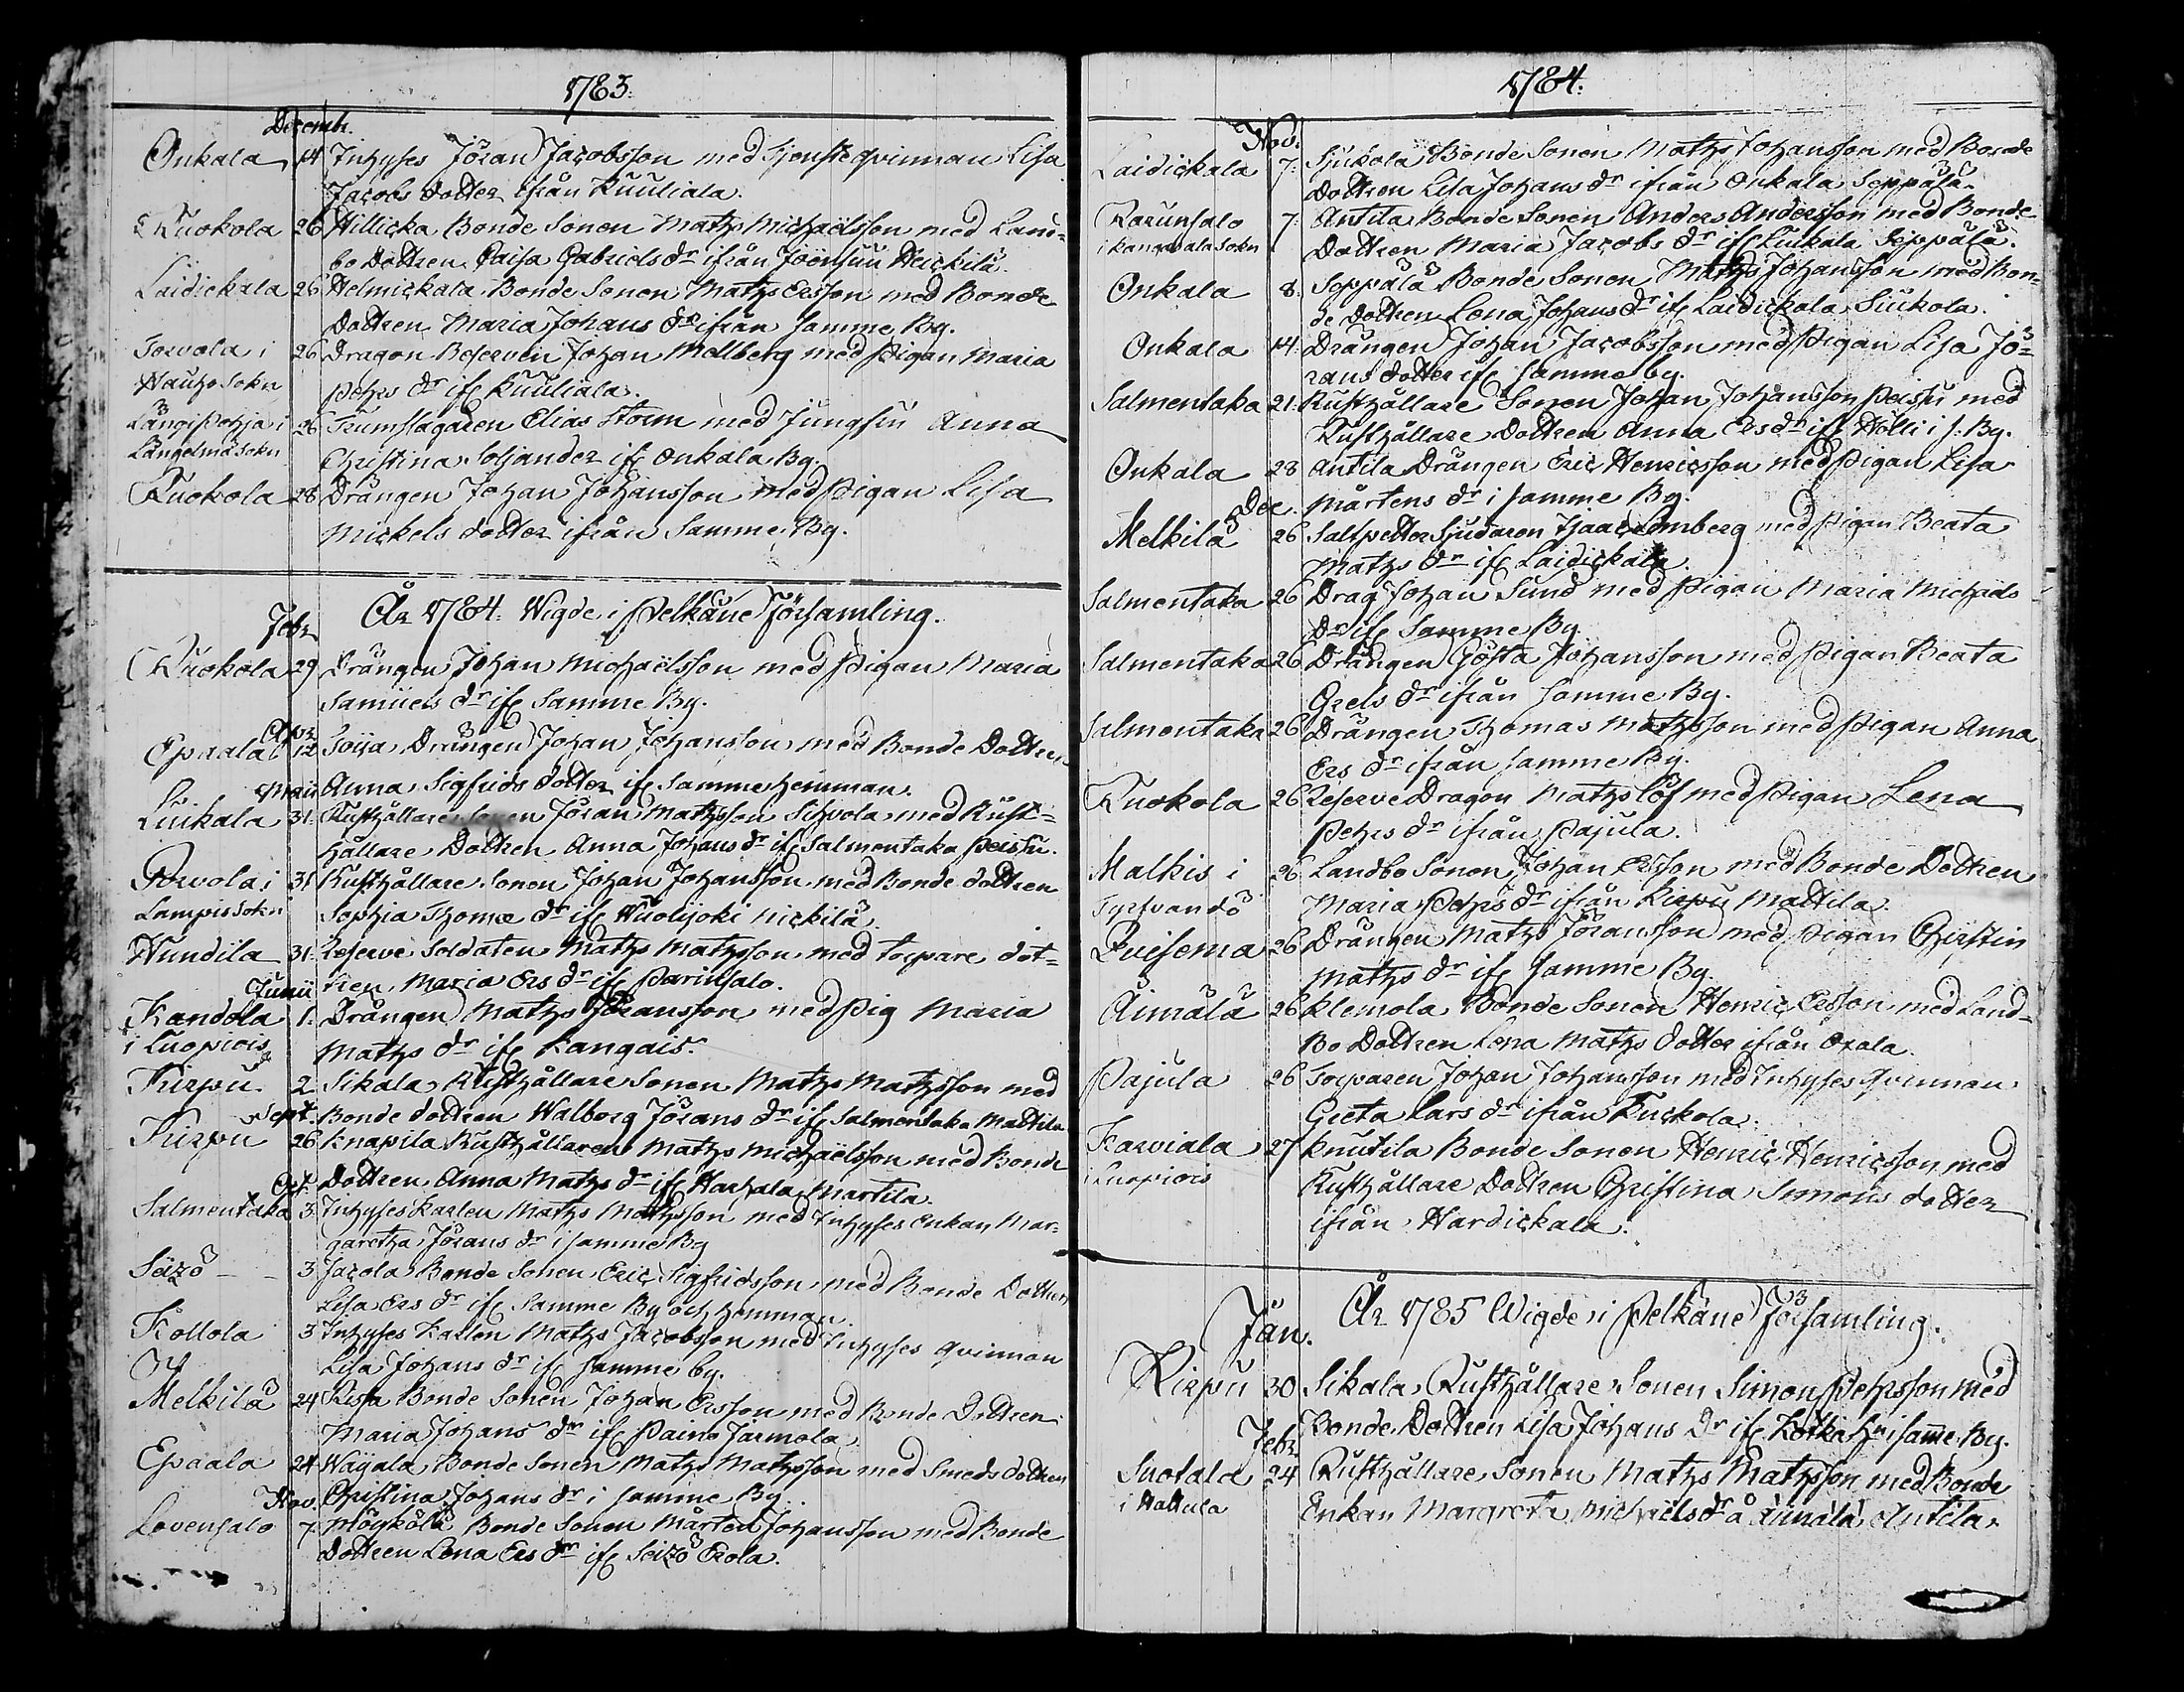 1783.
Decembr.
Onkala 14 Inhyses Jöran Jacobsson med Tjenste qvinnan Lisa
Jacobs dotter ifrån Kuuliala.
Kuokola 26 Hillicka Bonde Sonen Mathz Michaëlsson med Land-
bo Dottren Caisa Gabriels dr ifrån Joënsuu Heickilä.
Laidickala 26 Helmickala Bonde Sonen Mathz Ersson med Bonde
Dottren Maria Johans dr ifrån samme By.
Torvola i 26 Dragon Reserven Johan Mellberg med Pigan Maria
Hauho Sokn Pehrs dr if Kuuliala.
Längipohja i 26 Trumslagaren Elias Storm med Jungfru Anna
Längelmä Sokn Christina Soljander if Onkala By.
Kuokola 28 Drängen Johan Johansson med Pigan Lisa
Mickels dotter ifrån Samme By.
År 1784. Wigde i Pelkäne Församling.
Febr
Kuokola 29 Drängen Johan Michaëlsson med Pigan Maria
Samuels dr if Samme By.
Apr
Epaala 12 Soija Drängen Johan Johansson med Bonde Dottren
Maii Anna Sigfrids dotter if Samme hemman.
Luikala 31. Rusthållare Sonen Jöran Matthsson Sihvola med Rust-
hållare Dottren Anna Johans dr if Salmentaka Peissu.
Porvola i 31 Rusthållare Sonen Johan Johansson med Bonde dottren
Lampis Sokn Sophia Thomæ dr if Wuolijoki Nickilä.
Hundila 31. Reserve Soldaten Matths Mathsson med torpare dot-
Junii tren Maria Ers dr if Parinsalo.
Kandola 1. Drängen Matths Jöransson med Pig Maria
i Luopiois Maths dr if Kangais.
Kirpu 2 Sikala Rusthållare Sonen Matths Mathsson med
Sept. Bonde dottren Walborg Jörans dr if Salmentaka Mattila
Kirpu 26 Knapila Rusthållaren Matths Michaëlsson med Bonde
Oct. Dottren Anna Maths dr if Harhala Martila
Salmentaka 3. Inhyses Karlen Matths Mathsson med Inhyses Enkan Mar-
garetha Jörans dr i samme By
Seizo 3 Jacola Bonde Sonen Eric Sigfridsson med Bonde Dottren
Lisa Ers dr if Samme By och hemman.
Kollola 3 Inhyses Karlen Matths Jacobsson med Inhyses qvinnan
Lisa Johans dr if samme by.
Melkilä 24 Rissa Bonde Sonen Johan Ersson med Bonde Dottren
Maria Johans dr if Paino Jarmola
Epaala 24 Wäijala Bonde Sonen Matths Mathsson med Smeds dottren
Nov. Christina Johans dr i samme By.
Lovensalo 7. Möykölä Bonde Sonen Mårten Johansson med Bonde
Dottren Lena Ers dr if Seizo Erola.
1784.
Nov.
Laidickala 7. Sjukola Bonde Sonen Maths Johansson med Bonde
Dottren Lisa Johans dr ifrån Onkala Seppälä.
Rorunsalo 7. Antila Bonde Sonen Anders Andersson med Bonde
i Kangasala Sokn Dottren Maria Jacobs dr if Luikala Seppälä.
Onkala 8. Seppälä Bonde Sonen Maths Johansson med Bon-
de Dottren Lena Johans dr if Laidickala Siukola.
Onkala 14. Drängen Johan Jacobsson med Pigan Lisa Jö-
rans dotter if samme by.
Salmentaka 21. Rusthållare Sonen Johan Johansson Peissu med
Rusthållare Dottren Anna Ers dr if Hölli i s. By.
Onkala 28 Antila Drängen Eric Henricsson med Pigan Lisa
Dec. Mårtens dr i samme By.
Melkilä 26 Saltpetter Sjudaren Isaac Lemberg med Pigan Beata
Maths dr if Laidickala.
Salmentaka 26 Drag Johan Sund med Pigan Maria Michaels
Dr if Samme By
Salmentaka 26 Drängen Gösta Johansson med Pigan Beata
Grels dr ifrån samme By.
Salmentaka 26 Drängen Thomas Mathsson med Pigan Anna
Ers dr ifrån samme By.
Kuokola 26 Reserve Dragon Matths Löf med Pigan Lena
Pehrs dr ifrån Pajula.
Malkis i 26 Landbo Sonen Johan Ersson med Bonde Dottren
Tyrfvandö Maria Pehrs dr ifrån Kirpu Mattila.
Luisema 26 Drängen Matths Jöransson med Pigan Christin
Maths dr if samme By.
Äimälä 26 Klemola Bonde Sonen Henric Ersson med Land-
Bo Dottren Lena Maths dotter ifrån Orala.
Pajula 26 Torparen Johan Johansson med Inhyses qvinnan
Greta Lars dr ifrån Kuckola.
Karviala 27 Knutila Bonde Sonen Henric Henricsson med
i Luopiois Rusthållare Dottren Christina Simons dotter
ifrån Hardickala.
År 1785 Wigde i Pelkäne Församling.
Jan.
Kirpu 30 Sikala Rusthållare Sonen Simon Pehrsson med
Febr Bonde Dottren Lisa Johans Dr if Kotka hn i same By.
Suotala 24 Rusthållare Sonen Maths Mathsson med Bonde
i Hattula Enkan Margreta Michaels dr å Äimälä Antila.